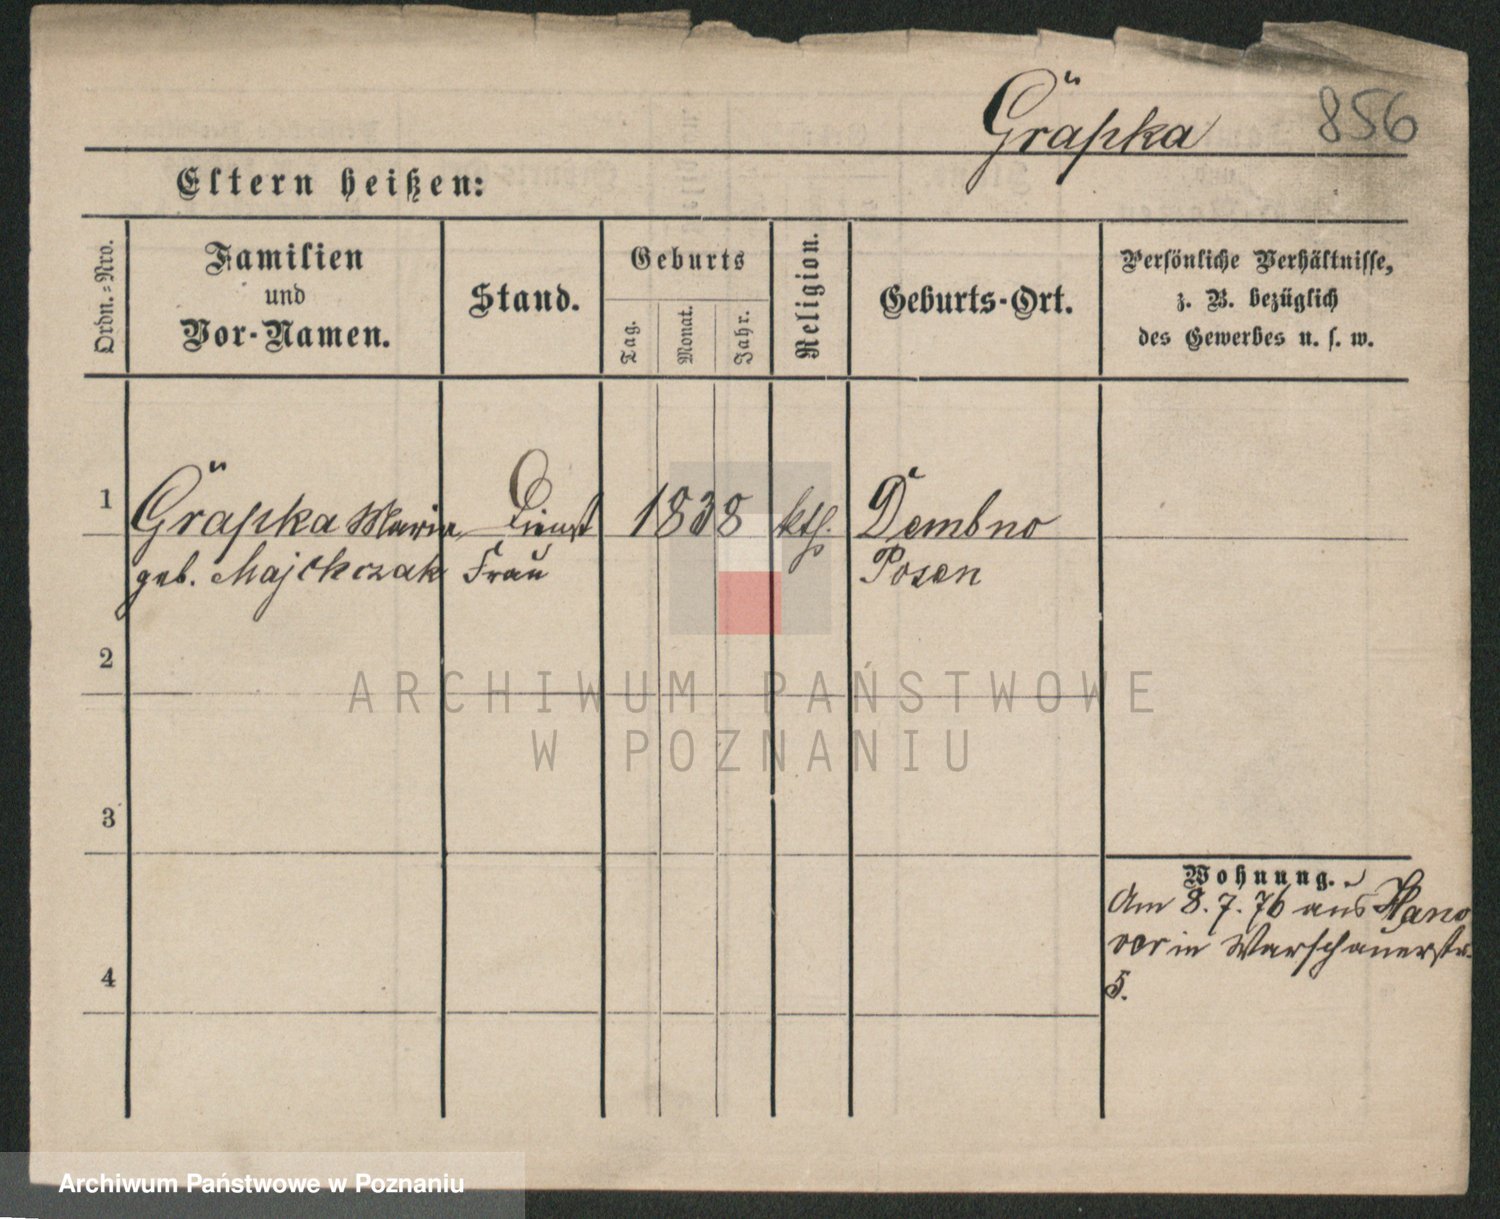 Gräpka 856
Eltern heißen:
Ordn.=Nro.
Familien
und
Vor-Namen.
Stand.
Geburts
Tag.
Monat.
Jahr.
Religion.
Geburts-Ort.
Persönliche Verhältnisse,
z. B. bezüglich
des Gewerbes u. s. w.
1 Gräpka Maria Dienst 1838 kth. Dembno
geb. Frau Posen
2
3
4
Wohnung.
Am 8. 7. 76 aus Hano
ver in Warschauerstr.
5.
ARCHIWUM PAŃSTWOWE
W POZNANIU
Archiwum Państwowe w Poznaniu